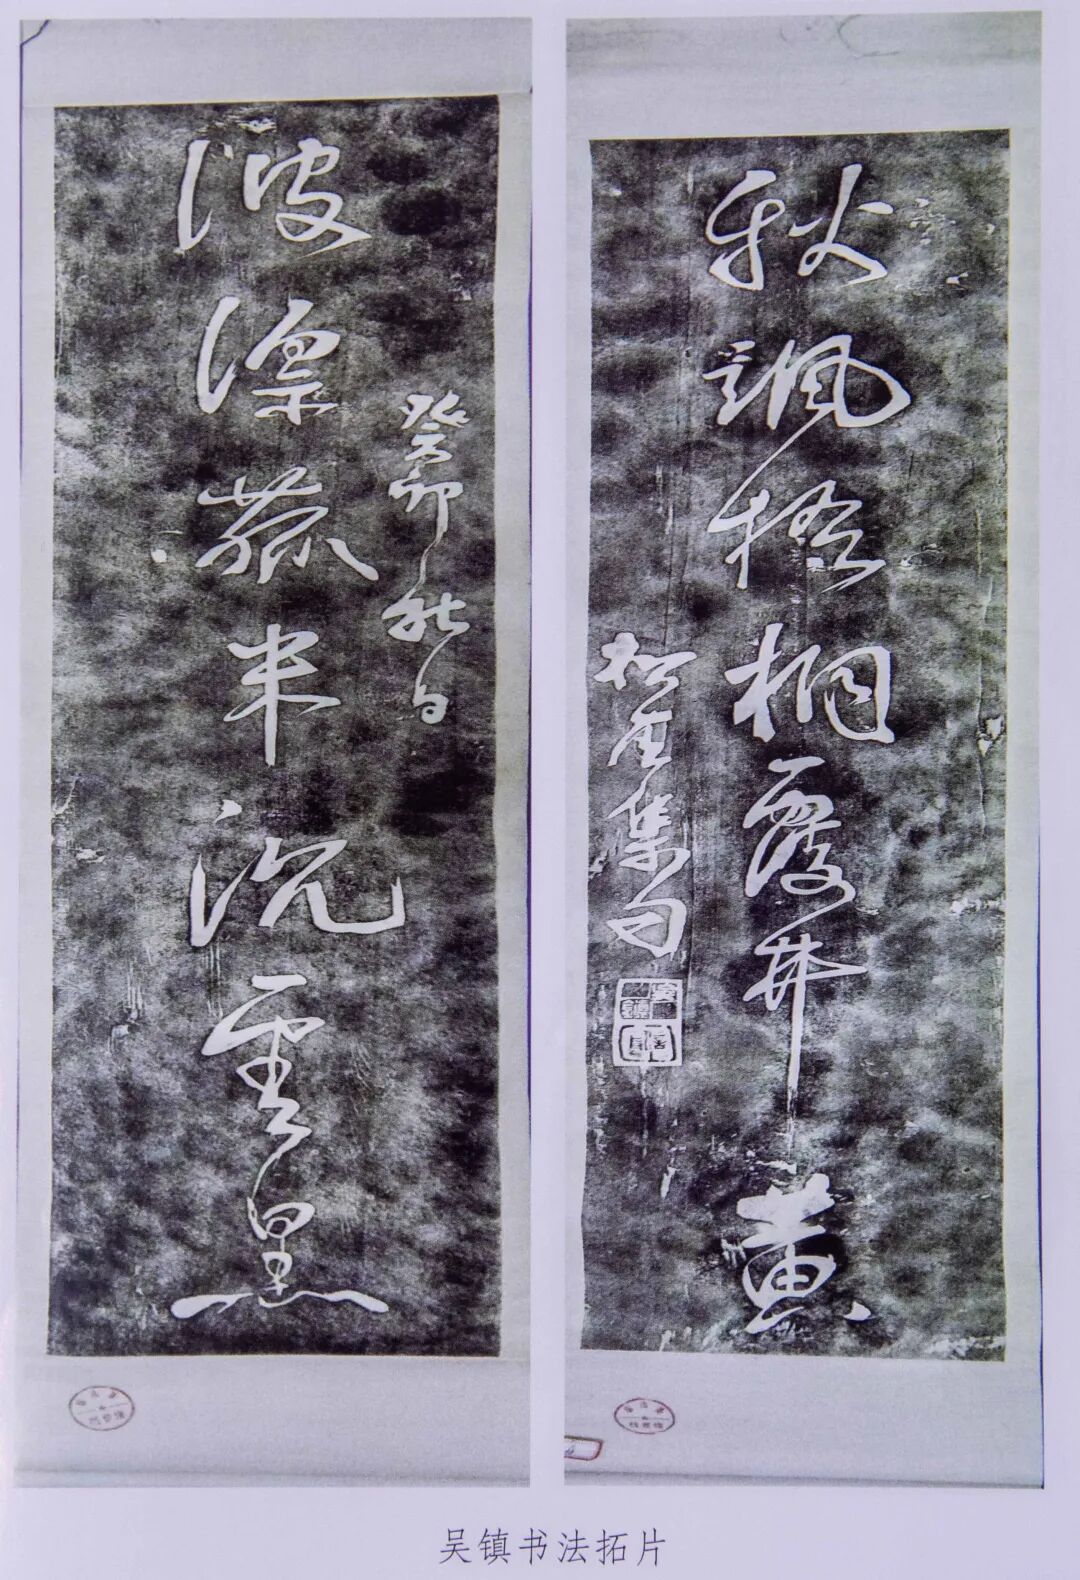 癸卯秋日
波漂菰米沉雲黑
秋颯梧桐覆井黄
松崖集句
吴镇书法拓片